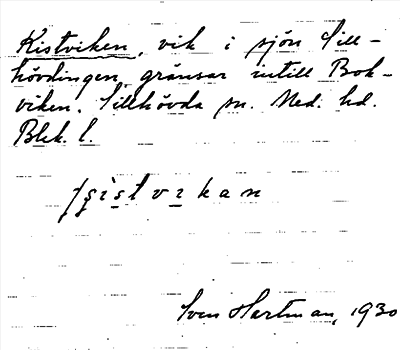 Kistviken, vik i sjön Sill-
hövdingen, gränsar intill Bok-
viken. Sillhövda sn. Med. hd.
Blek. l.
Sven Hartman, 1930